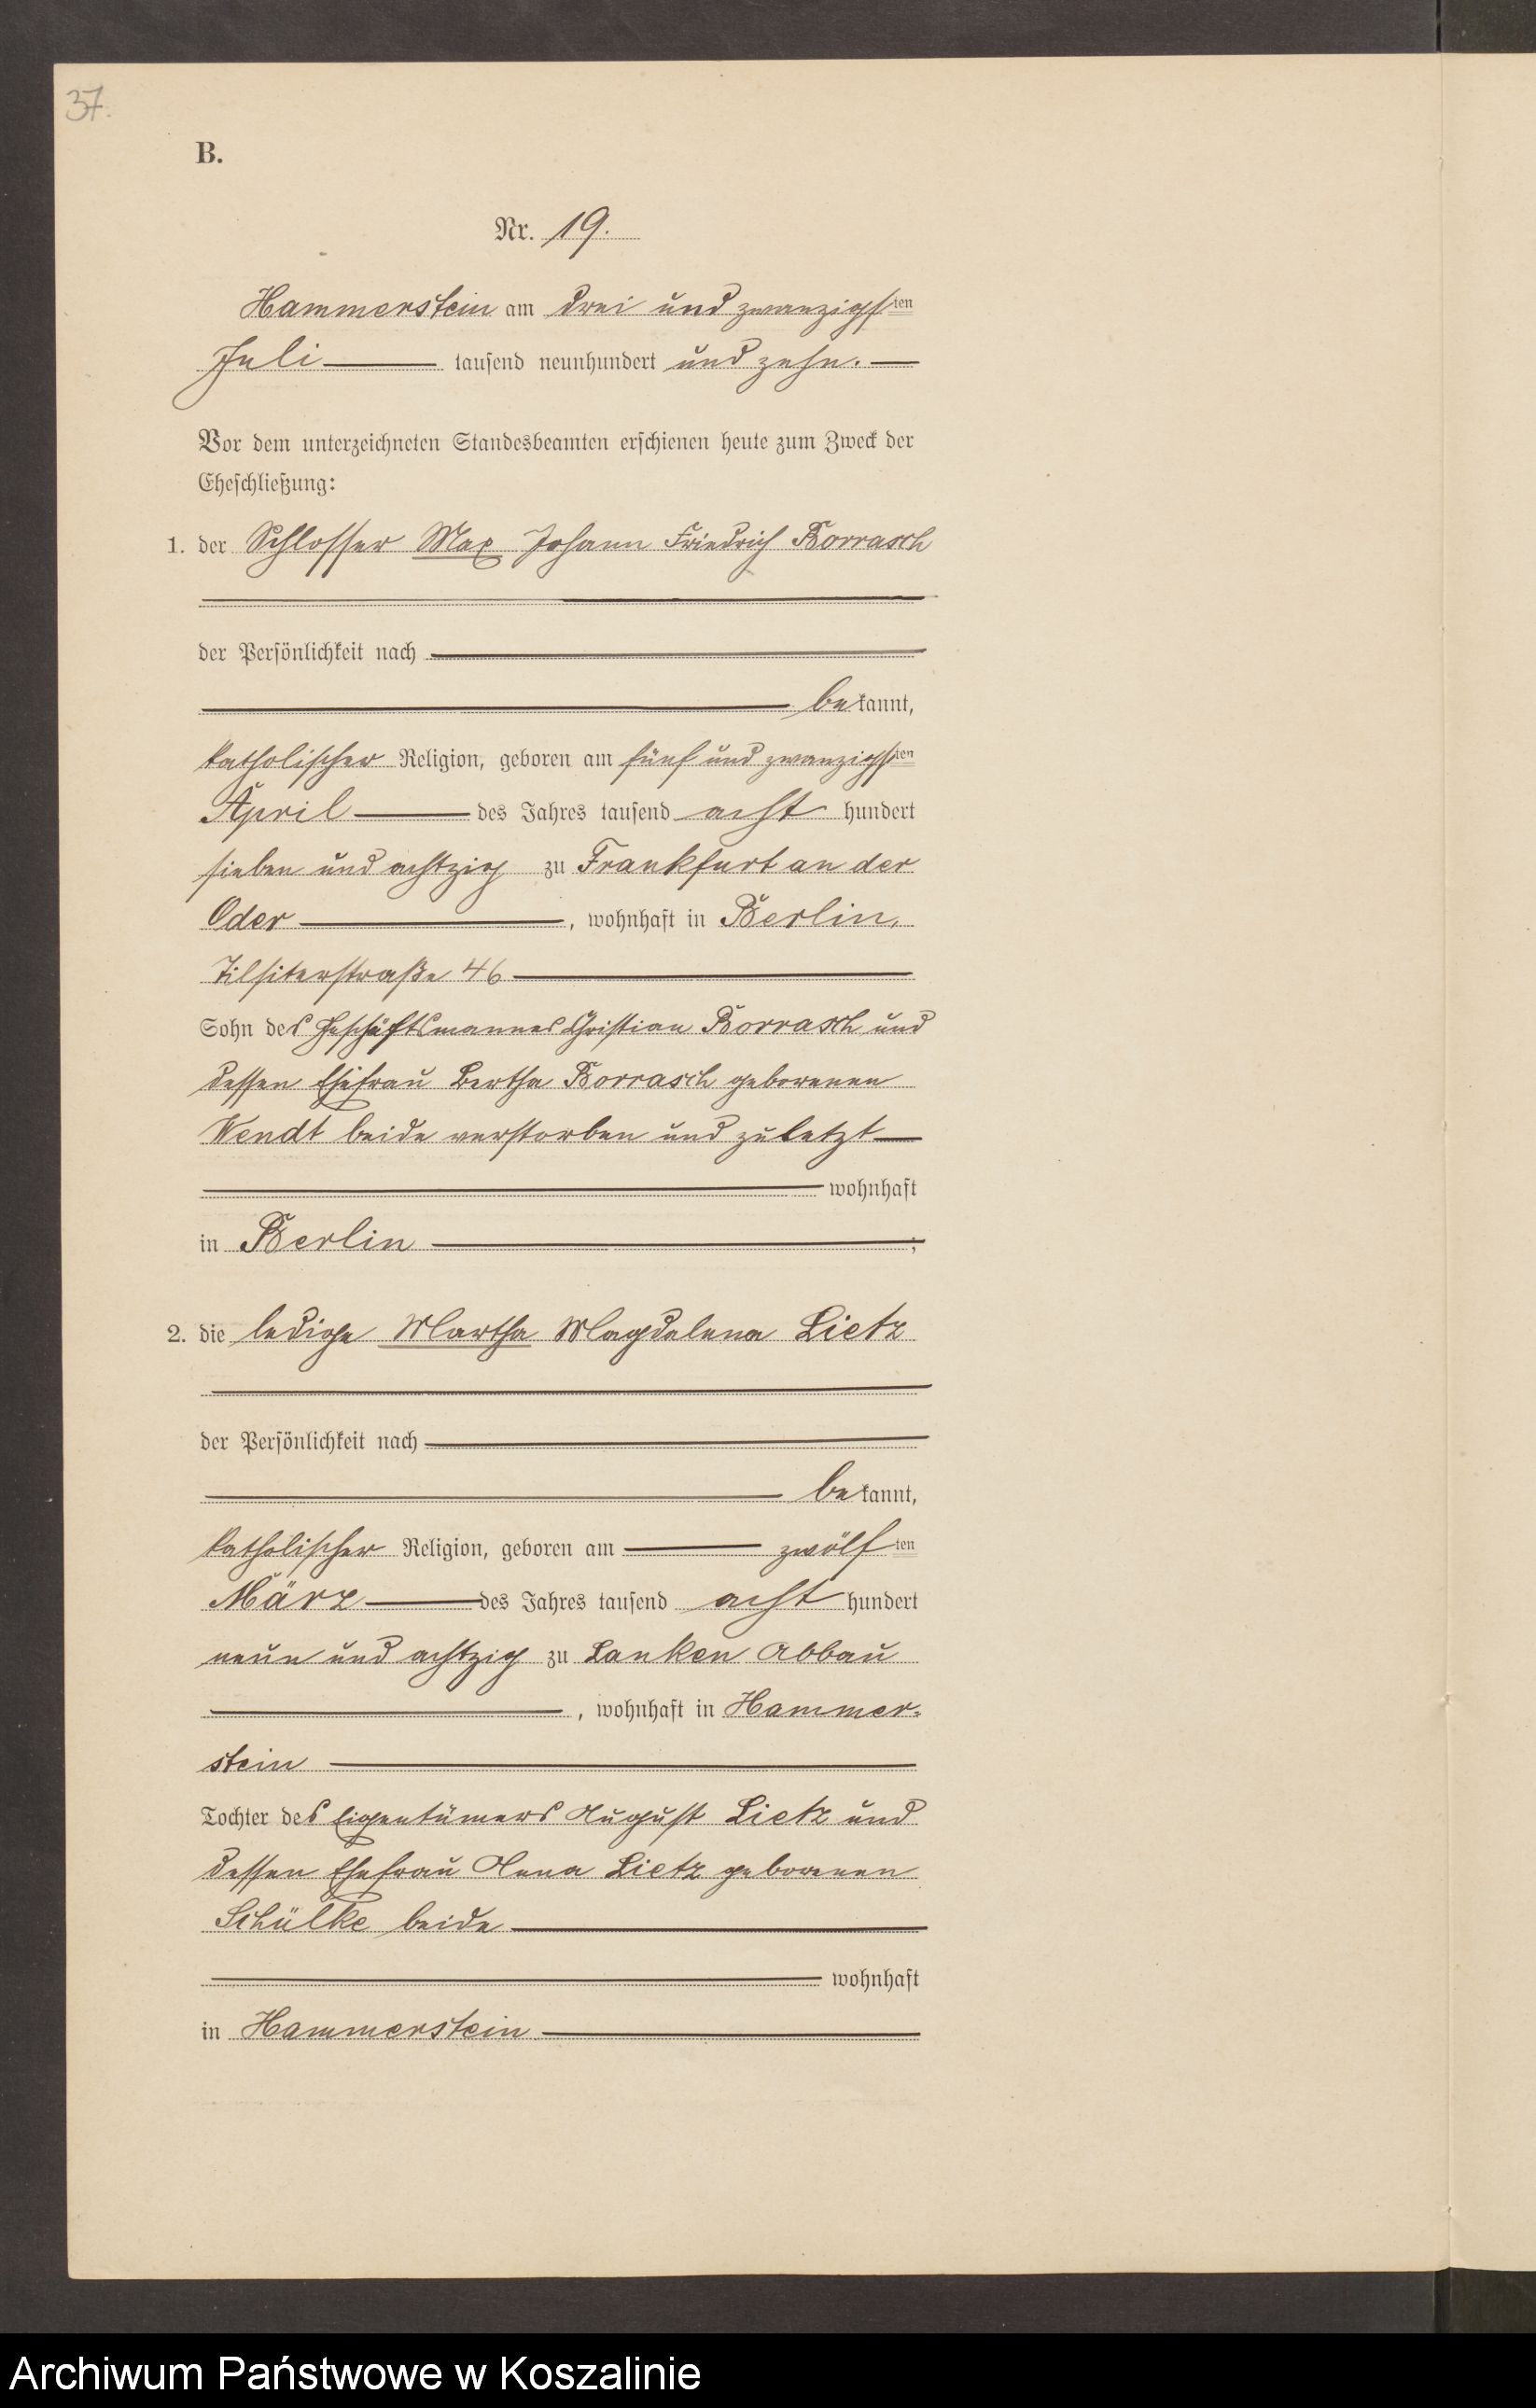 37.
B.
Nr. 19.
Hammerstein am drei und zwanzigsten
Juli tausend neunhundert und zehn.
Vor dem unterzeichneten Standesbeamten erschienen heute zum Zweck der
Eheschließung:
1. der Schlosser Max Johann Friedrich Borrasch
der Persönlichkeit nach
bekannt,
katholischer Religion, geboren am fünf und zwanzigsten
April des Jahres tausend acht hundert
sieben und achtzig zu Frankfurt an der
Oder, wohnhaft in Berlin,
Tilsiterstraße 46
Sohn des Geschäftsmannes Christian Borrasch und
dessen Ehefrau Bertha Borrasch geborenen
Wendt beide verstorben und zuletzt
wohnhaft
in Berlin;
2. die ledige Martha Magdalena Lietz
der Persönlichkeit nach
bekannt,
katholischer Religion, geboren am zwölften
März des Jahres tausend acht hundert
neun und achtzig zu Lanken Abbau
, wohnhaft in Hammer-
stein
Tochter des Eigentümers August Lietz und
dessen Ehefrau Anna Lietz geborenen
Schülke beide
wohnhaft
in Hammerstein
Archiwum Państwowe w Koszalinie